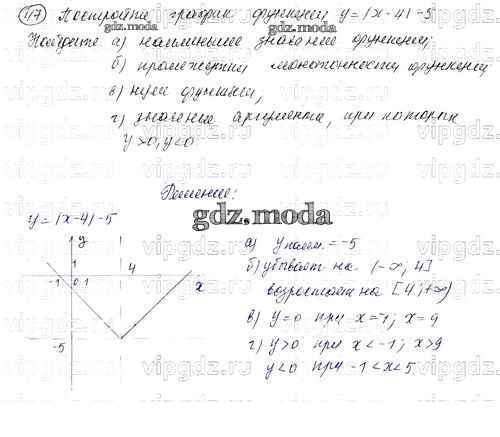 417 Постройте график функции y=|x-4|-5
Найдите а) наименьшее значение функции;
б) промежутки монотонности функции
в) нули функции,
г) значения аргумента, при которых
y>0, y<0
Решение:
gdz.moda
y=|x-4|-5
y
1
4
-1 0 1
x
-5
а) y наим. = -5
б) убывает на (-∞; 4]
возрастает на [4; +∞)
в) y=0 при x=-1; x=9
г) y>0 при x<-1; x>9
y<0 при -1<x<5